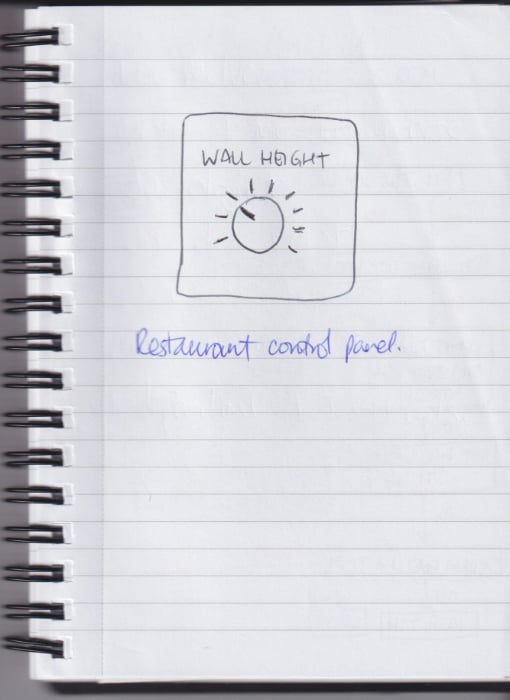 WALL HEIGHT
Restaurant control panel.